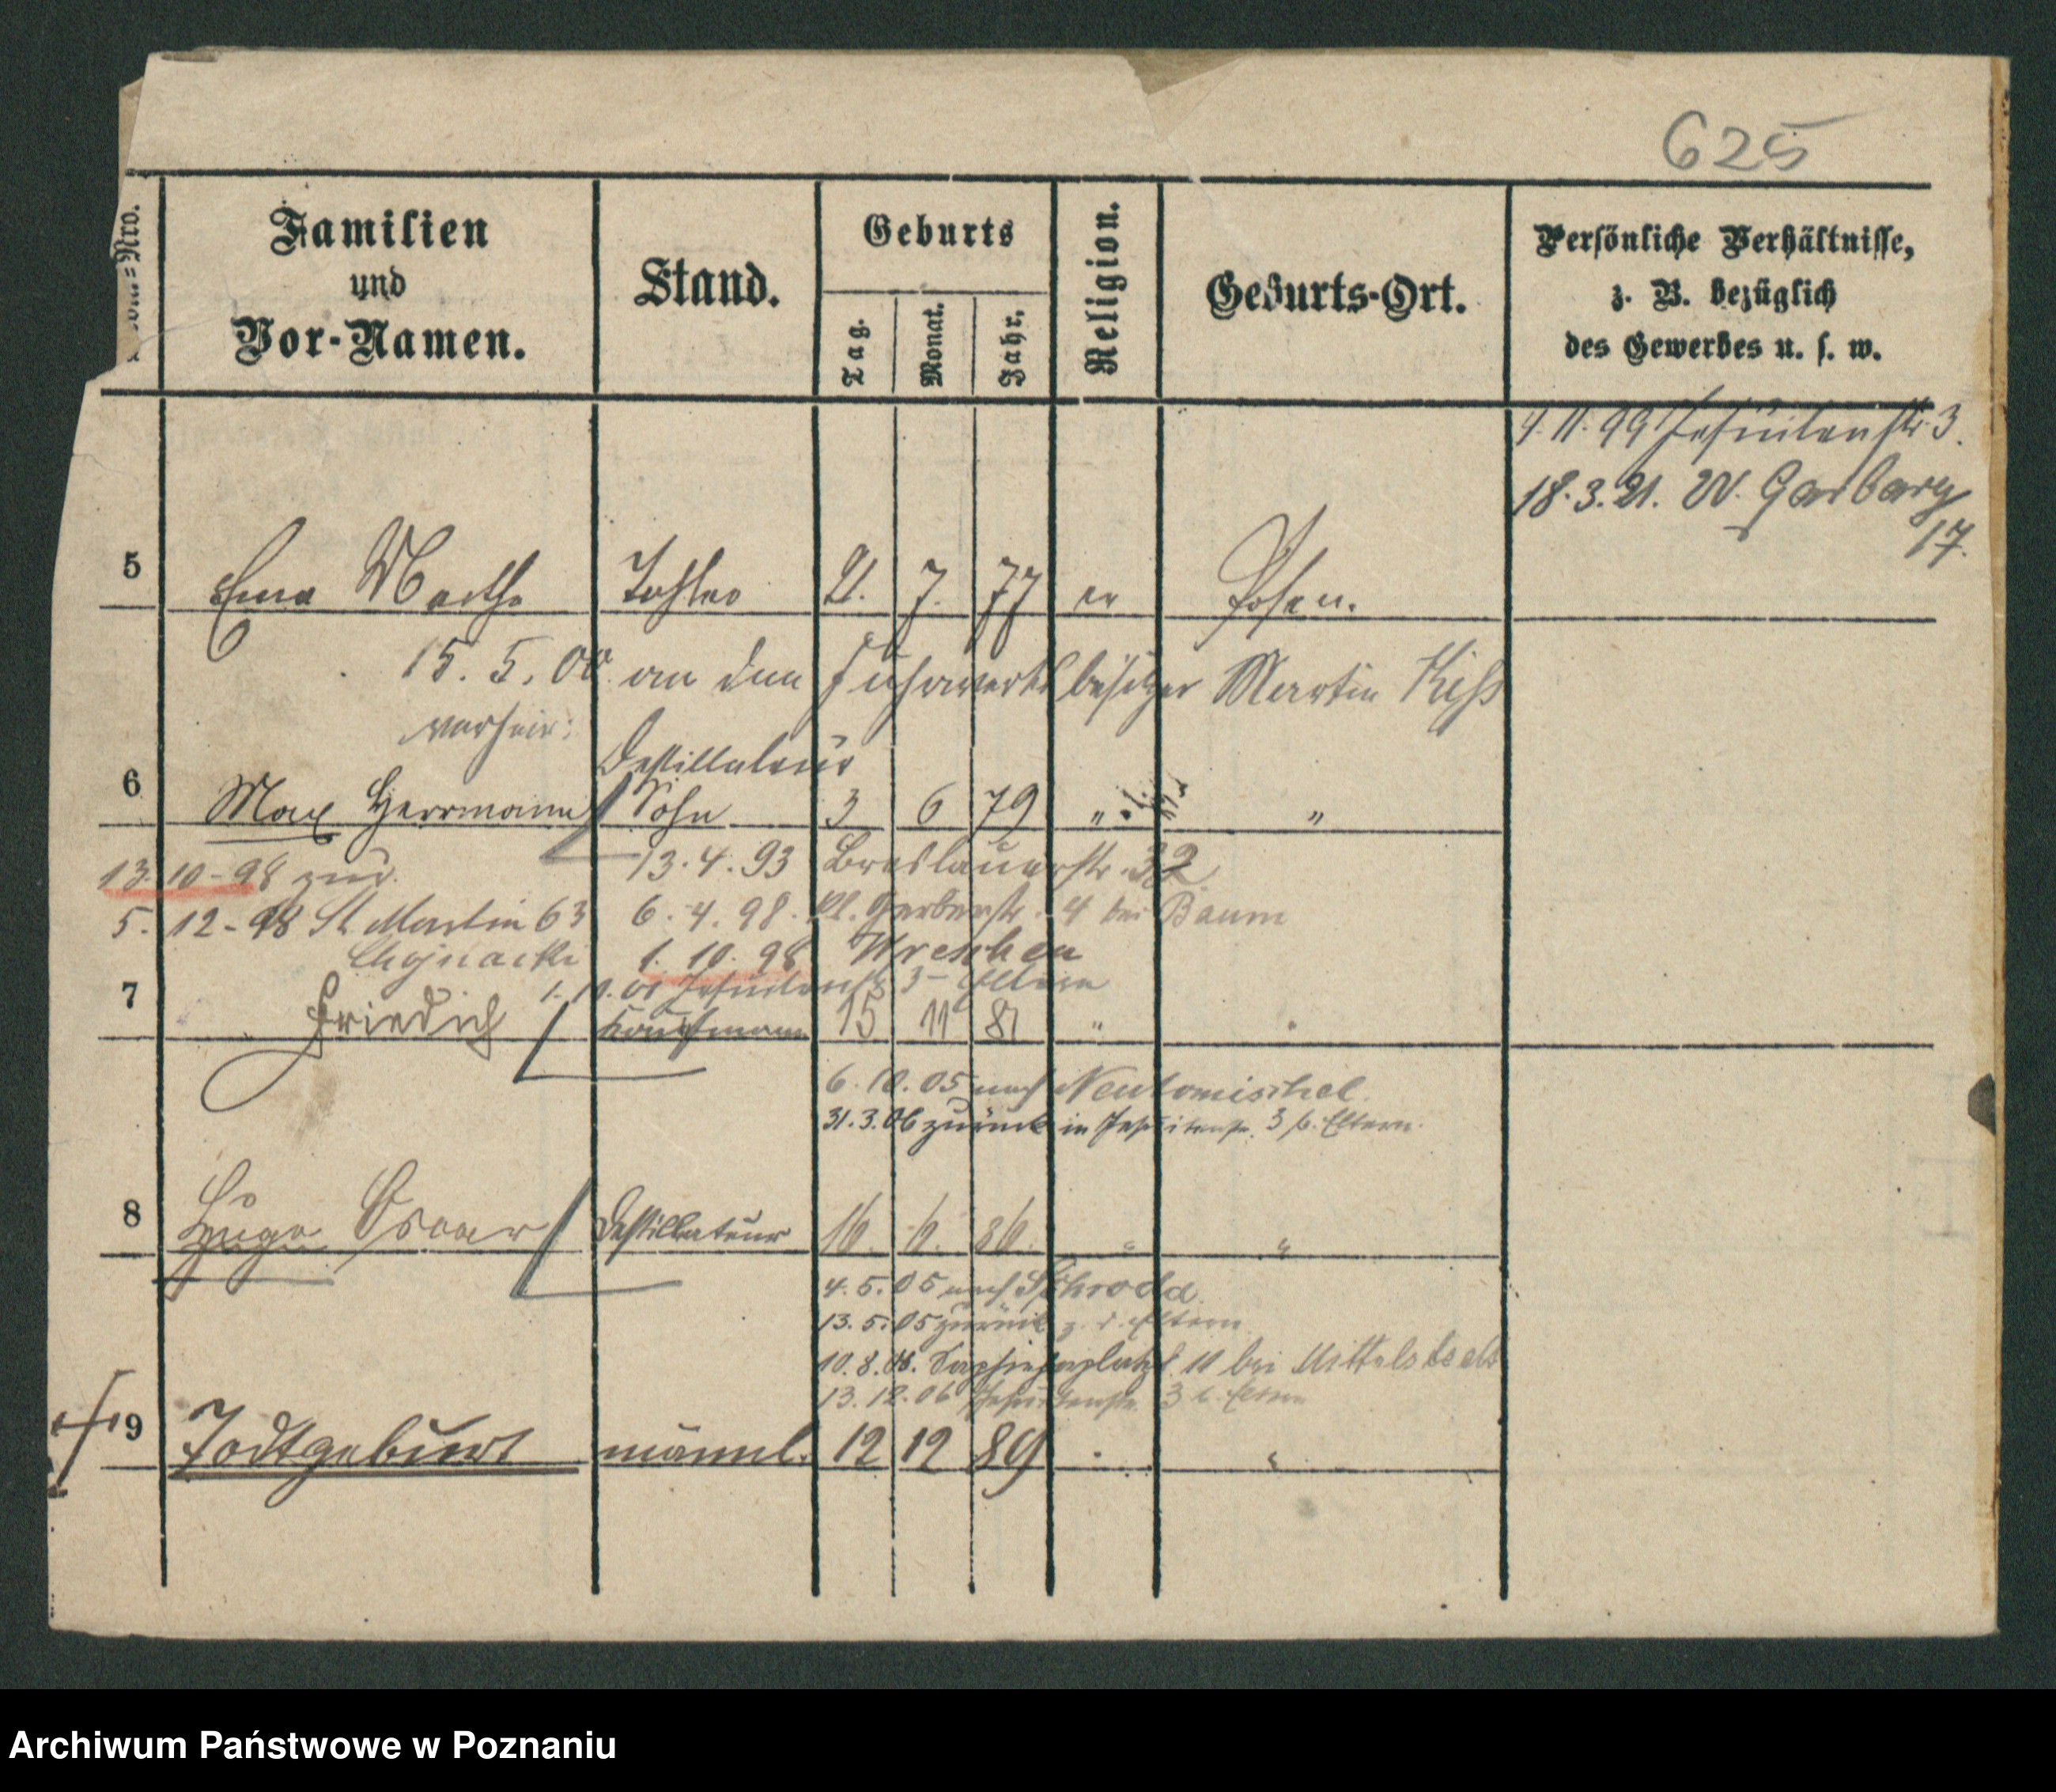 625
Nro.
Familien
und
Vor-Namen.
Stand.
Geburts
Tag.
Monat.
Jahr.
Religion.
Geburts-Ort.
Persönliche Verhältnisse,
z. B. bezüglich
des Gewerbes u. s. w.
4. 11. 99 Jesuitenstr. 3.
18. 3. 21. W. Garbary
17.
5 Martha Tochter 21. 7. 77 ev Posen.
15. 5. 00 an den Fuhrwerksbesitzer Martin
verheir:
Destillateur
6 Max Herrmann Sohn 3 6 79 " "
13. 10-98 zur. 13. 4. 93 Breslauerstr. 32
5. 12-98 St Martin 63 6. 4. 98. Kl. Gerberstr. 4 bei Baum
Chojnacki 1. 10. 98 Wreschen
Jesuitenstr 3 Eltern
7 Friedrich Kaufmann 15 11 81 "
6. 10. 05 nach Neutomischel.
31. 3. 06 zurück in Jesuitenstr. 3 b. Eltern.
8 Hugo Oscar Destillateur 16. 6. 86. " "
4. 5. 05 nach Schroda.
13. 5. 05 zurück z. d. Eltern
10. 8. 06. Sapiehaplatz 11 bei Mittelstedt
13. 12. 06 Jesuitenstr. 3 b. Eltern
9 Todtgeburt männl. 12 12 89 "
Archiwum Państwowe w Poznaniu